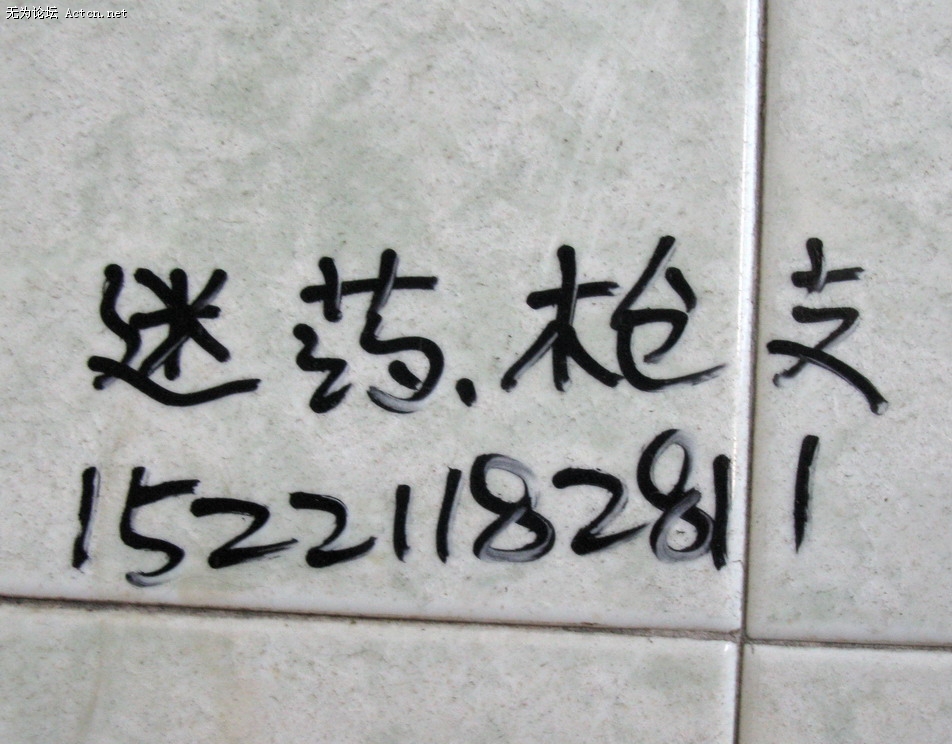 无为论坛 Actcn.net
迷药.枪支
15221182811